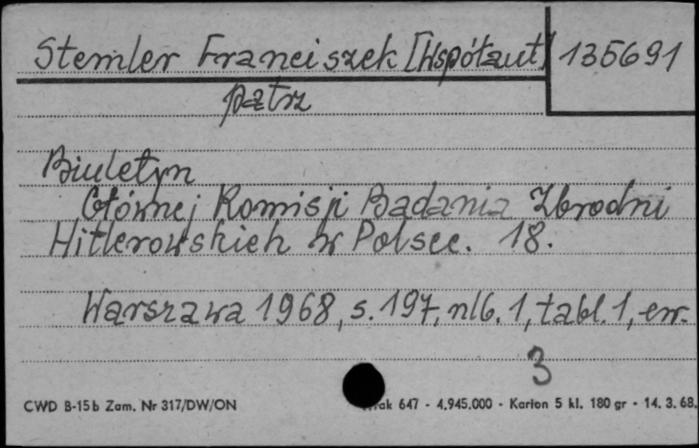 Stemler Franciszek [Współaut] 135691
patrz
Biuletyn
Głównej Komisji Badania Zbrodni
Hitlerowskich w Polsce. 18.
Warszawa 1968, s. 197, nlb. 1, tabl. 1, err.
3
CWD B-15b Zam. Nr 317/DW/ON 647 - 4.945.000 - Karton 5 kl. 180 gr - 14. 3. 68.